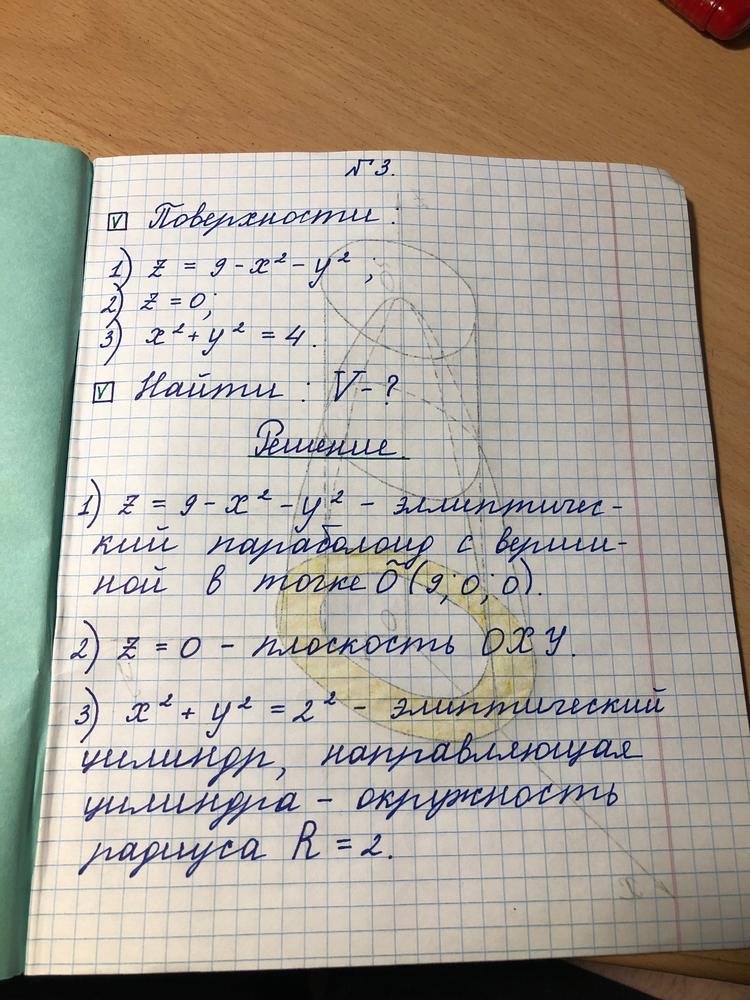 №3.
Поверхности:
1) z = 9 - x² - y²;
2) z = 0;
3) x² + y² = 4.
Найти: V - ?
Решение.
1) z = 9 - x² - y² - эллиптичес-
кий параболоид с верши-
ной в точке Õ (9; 0; 0).
2) z = 0 - плоскость OXY.
3) x² + y² = 2² - элиптический
цилиндр, направляющая
цилиндра - окружность
радиуса R = 2.